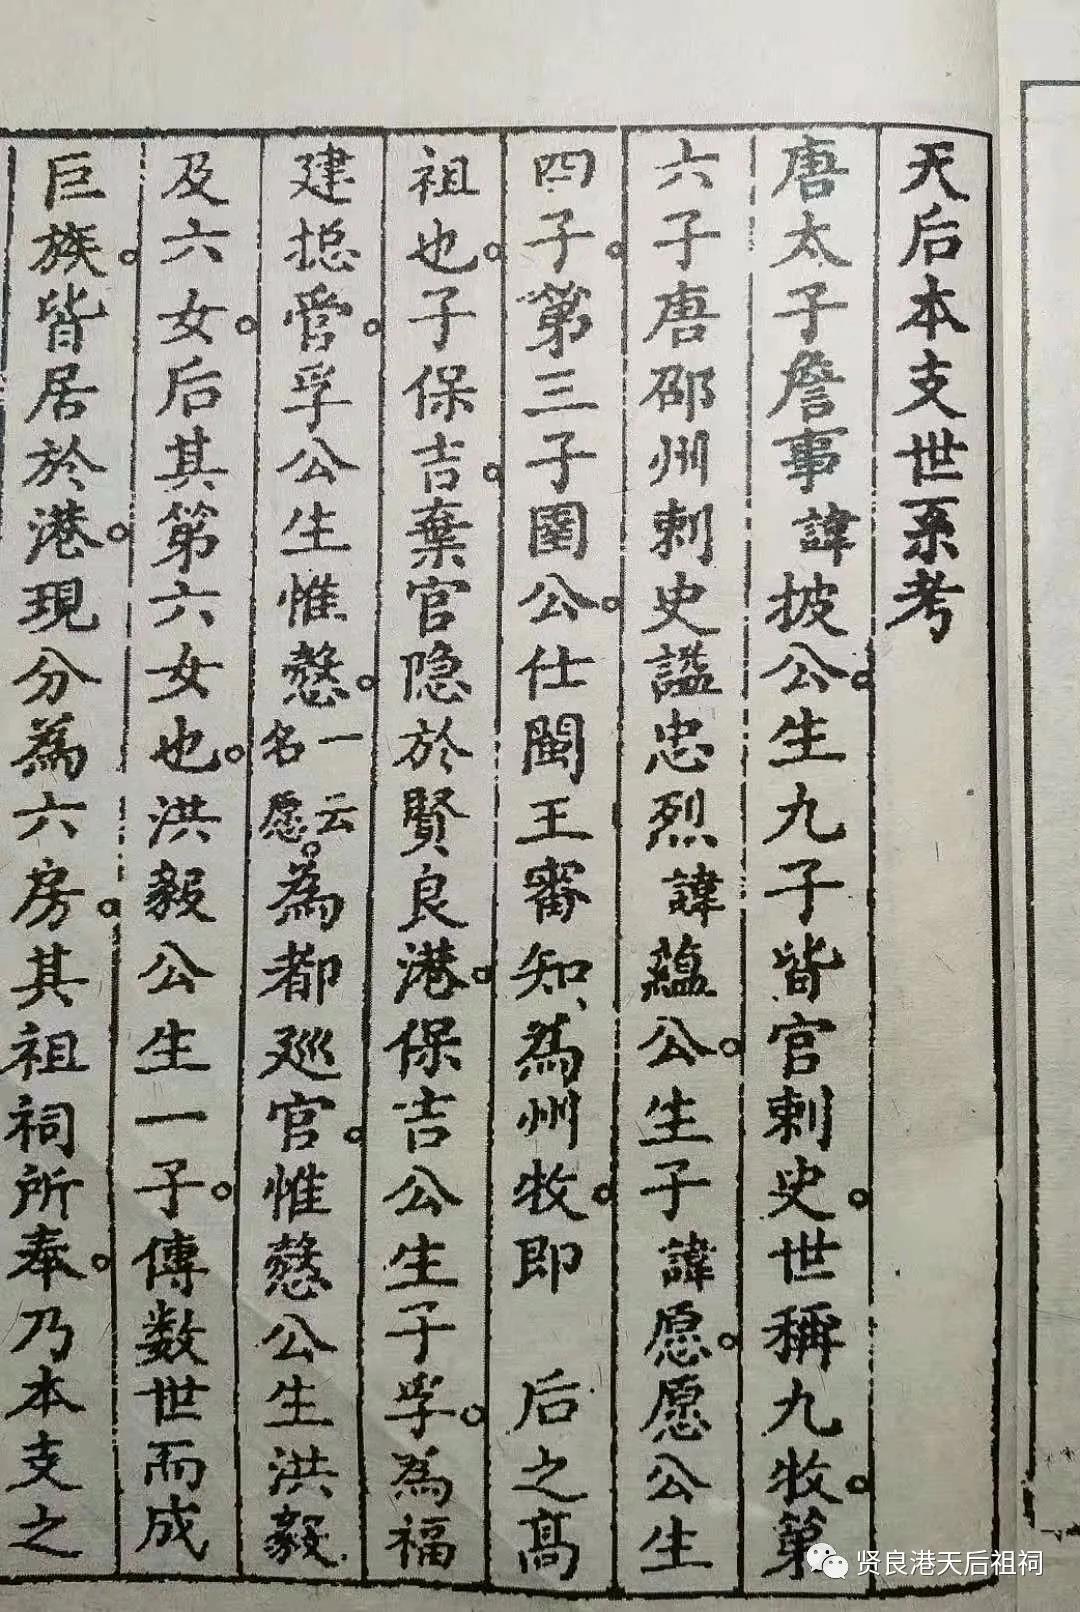 天后本支世系考
唐太子詹事諱披公。生九子皆官刺史。世稱九牧。第
六子唐邵州刺史謚忠烈諱蘊公。生子諱愿。愿公生
四子。第三子圉公。仕閩王審知、為州牧。即　后之高
祖也。子保吉。棄官隐於賢良港。保吉公生子孚。為福
建捴管。孚公生惟慤。一云名愿。為都廵官。惟慤公生洪毅
及六女。后其第六女也。洪毅公生一子。傳数世而成
巨族。皆居於港。現分為六房。其祖祠所奉。乃本支之
贤良港天后祖祠